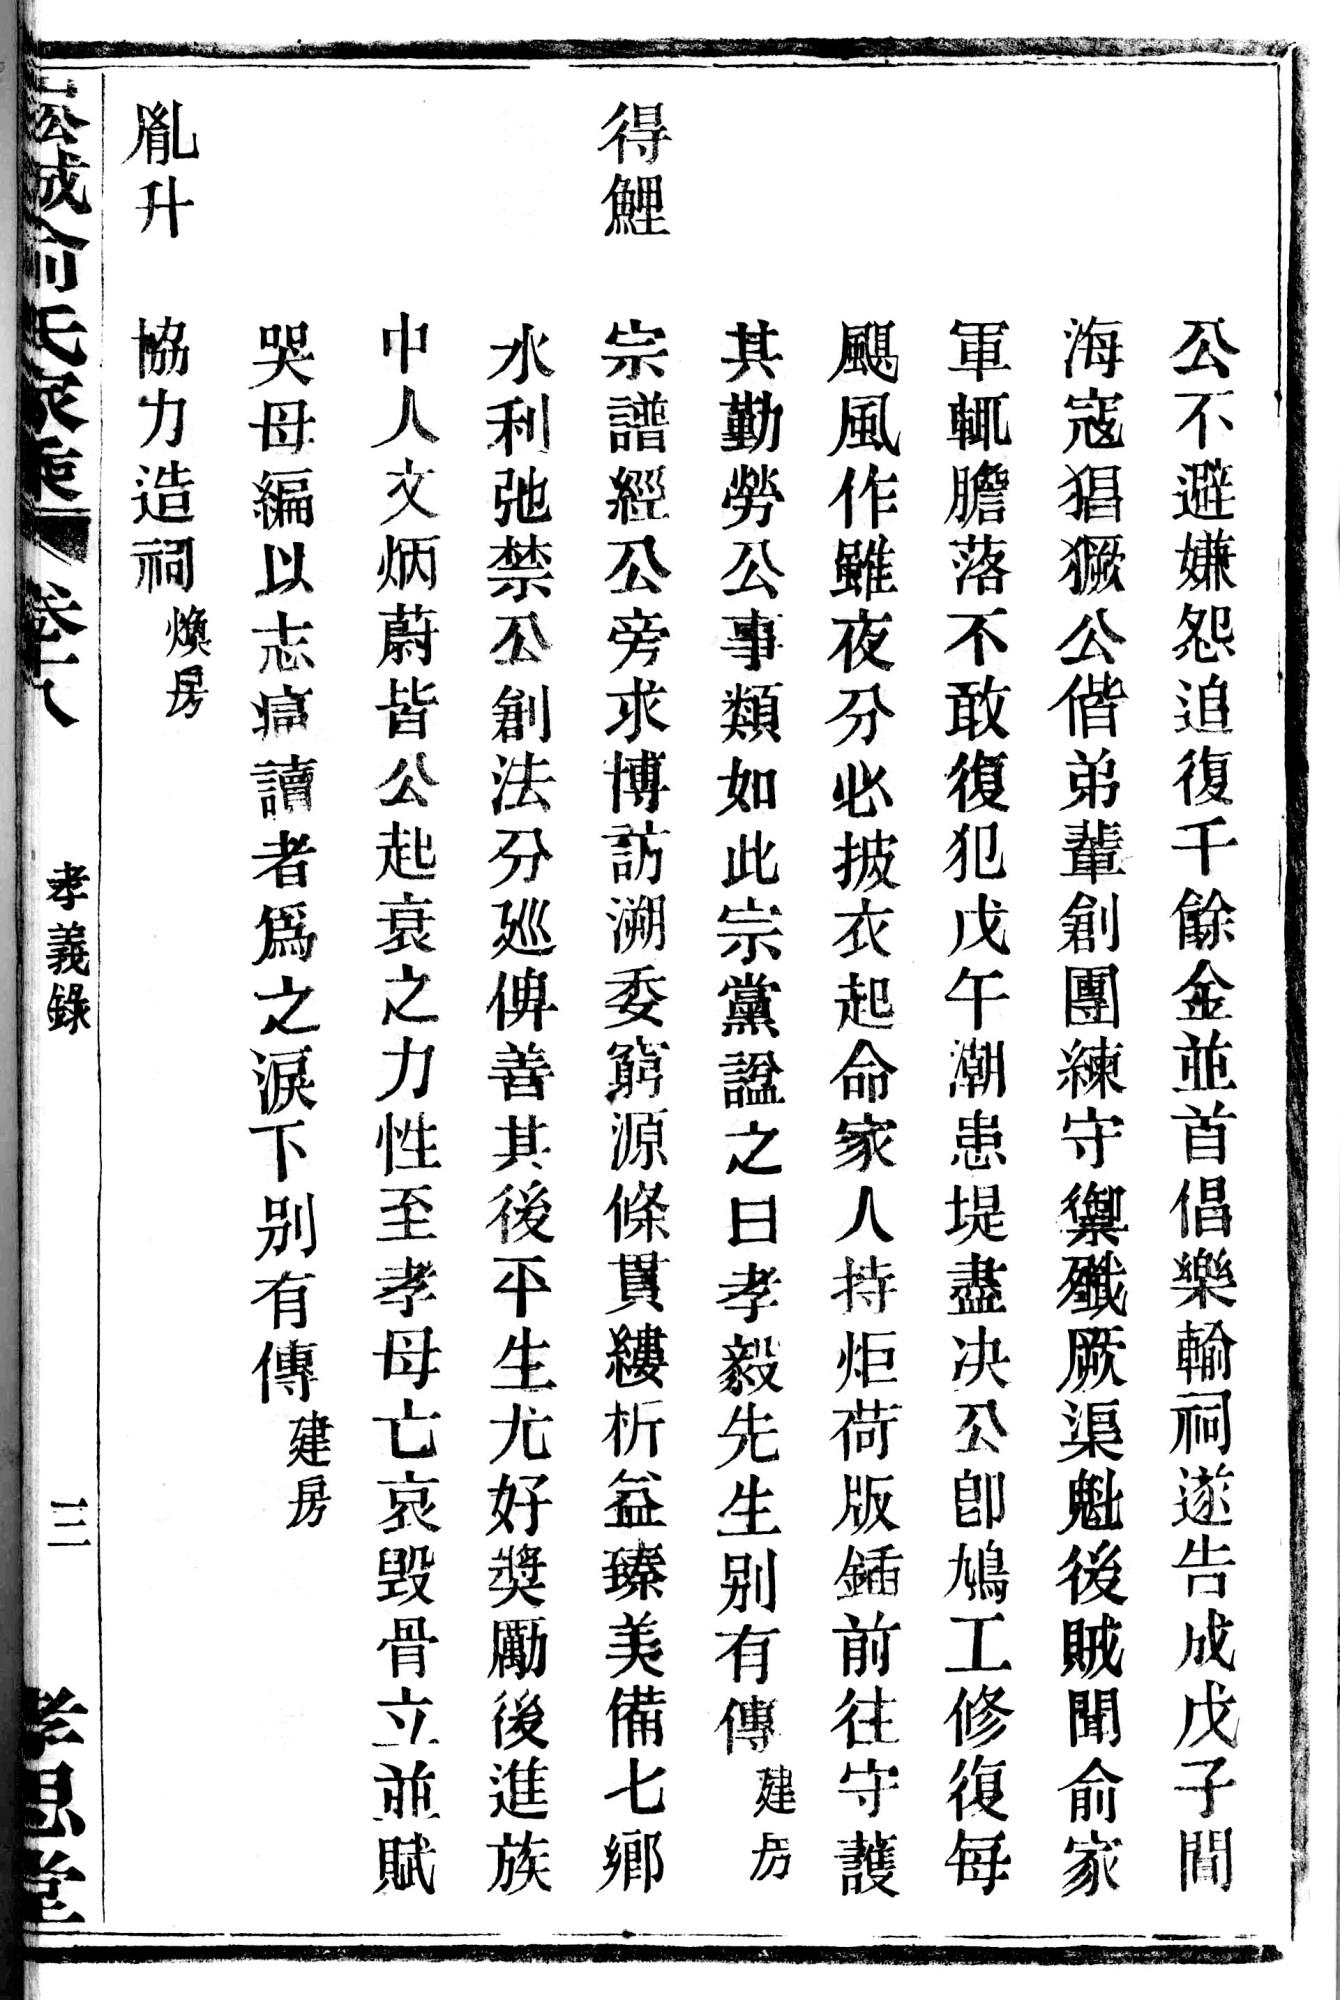 公不避嫌怨追復千餘金並首倡樂輸祠遂告成戊子間
海寇猖獗公偕弟輩創團練守禦殲厥渠魁後賊聞俞家
軍輒膽落不敢復犯戊午潮患堤盡决公卽鳩工修復每
颶風作雖夜分必披衣起命家人持炬荷版鍤前往守護
其勤勞公事類如此宗黨諡之曰孝毅先生別有傳建房
得鯉 宗譜經公旁求博訪溯委窮源條貫縷析益臻美備七鄉
水利弛禁公創法分廵俾善其後平生尤好獎勵後進族
中人文炳蔚皆公起衰之力性至孝母亡哀毀骨立並賦
哭母編以志痛讀者爲之淚下別有傳建房
胤升 協力造祠煥房
城俞氏家乘 卷十八 孝義錄 三 孝思堂